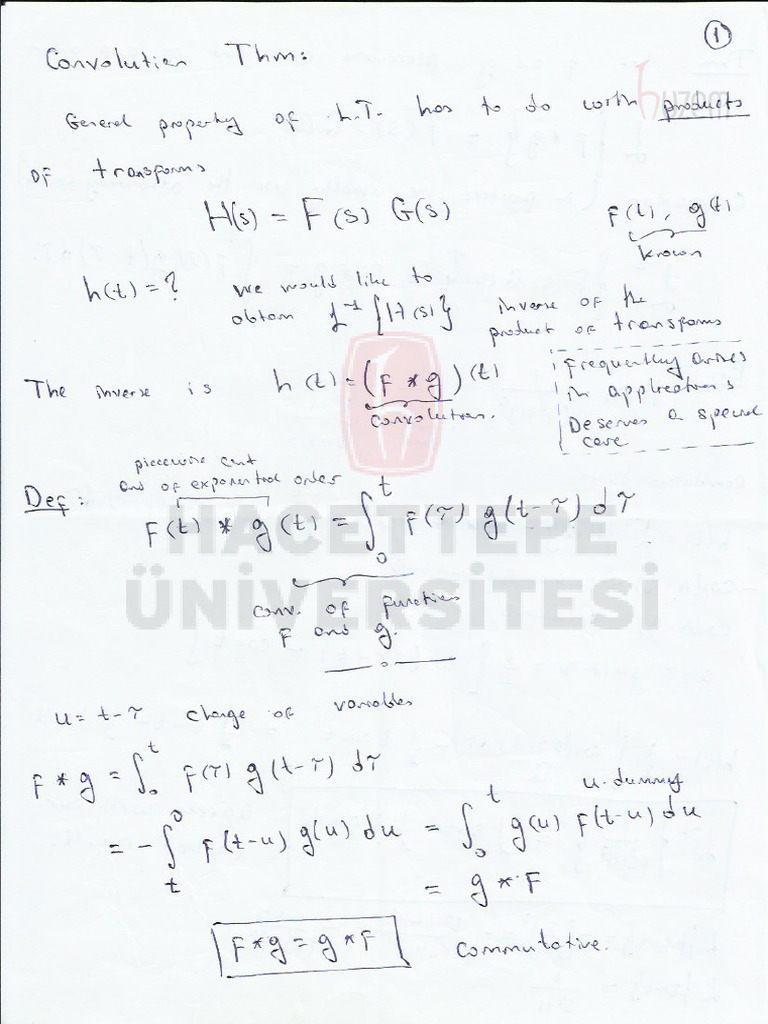 1
Convolution Thm:
huzem
General property of L.T. has to do with products
of transforms
H(s) = F(s) G(s)
f(t), g(t)
known
h(t) = ? we would like to
obtain L⁻¹{H(s)} inverse of the
product of transforms
The inverse is h(t) = (f * g)(t)
convolution.
Frequently arises
in applications
Deserves a special
care
piecewise cont
and of exponential order
Def: f(t) * g(t) = ∫₀ᵗ f(τ) g(t-τ) dτ
HACETTEPE
ÜNİVERSİTESİ
conv. of functions
f and g.
u = t-τ change of variables
f * g = ∫₀ᵗ f(τ) g(t-τ) dτ
u-dummy
= - ∫ₜ⁰ f(t-u) g(u) du = ∫₀ᵗ g(u) f(t-u) du
= g * f
f * g = g * f commutative.